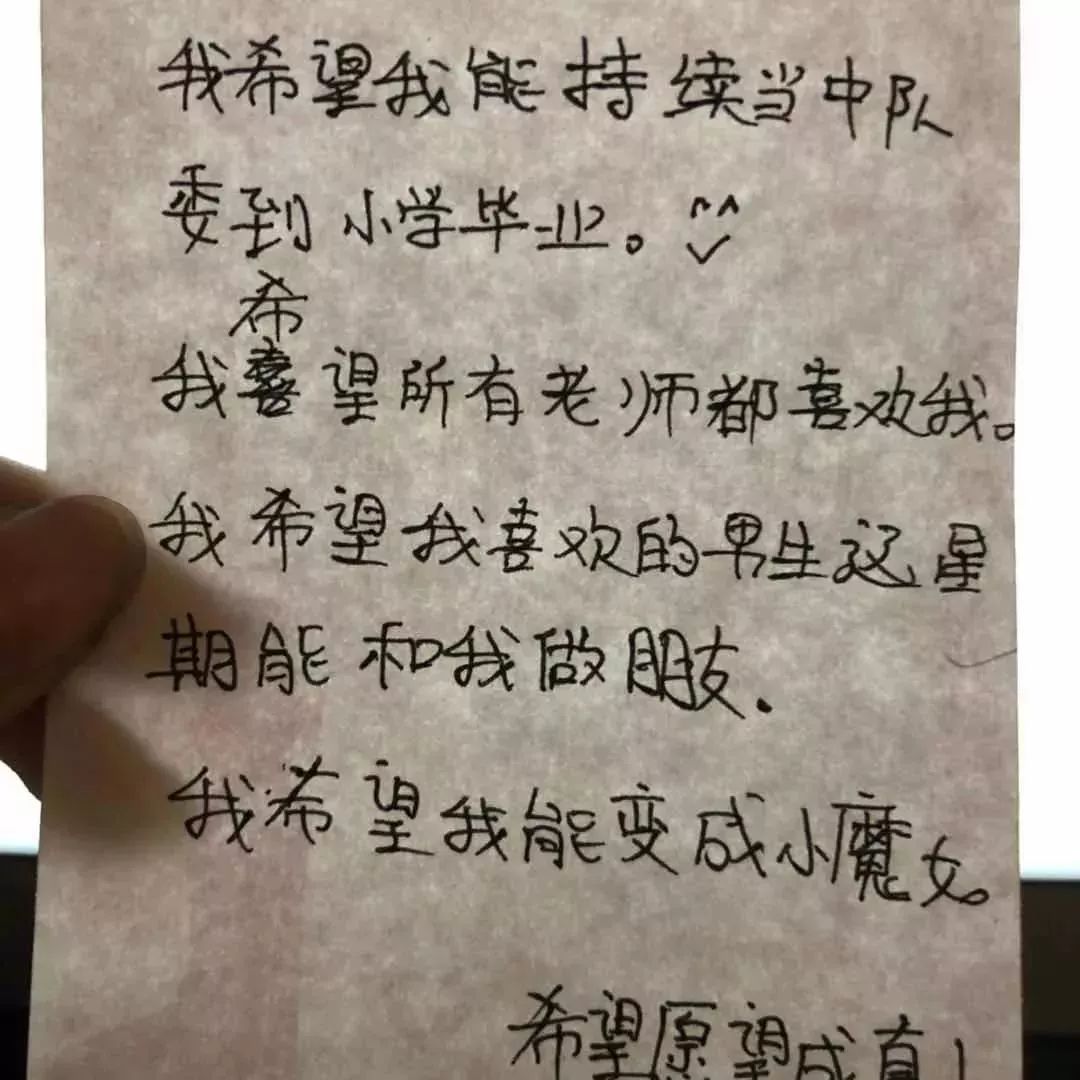 我希望我能持续当中队
委到小学毕业。
希
我喜望所有老师都喜欢我。
我希望我喜欢的男生这星
期能和我做朋友.
我希望我能变成小魔女。
希望愿望成真!